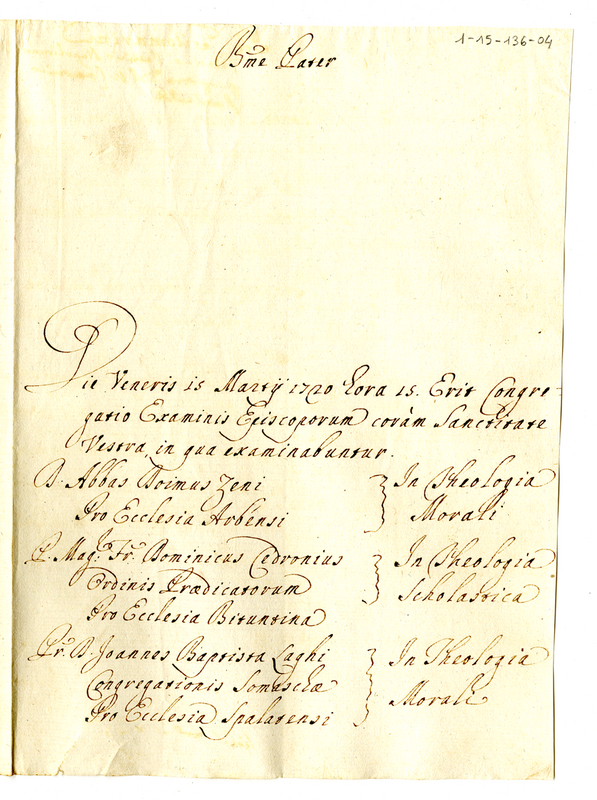 1-15-136-04
Bm̃e Pater
Die Veneris 15 Martij 1720 hora 15. Erit Congre-
gatio Examinis Episcoporum coràm Sanctitate
Vestra, in qua examinabuntur.
D. Abbas Doimus Zeni } In Theologia
Pro Ecclesia Arbensi Morali
P. Mag.r Fr. Dominicus Cedronius } In Theologia
Ordinis Prædicatorum Scholastica
Pro Ecclesia Bituntina
Pr. D. Joannes Baptista Laghi } In Theologia
Congregationis Somaschæ Morali
Pro Ecclesia Spalatensi